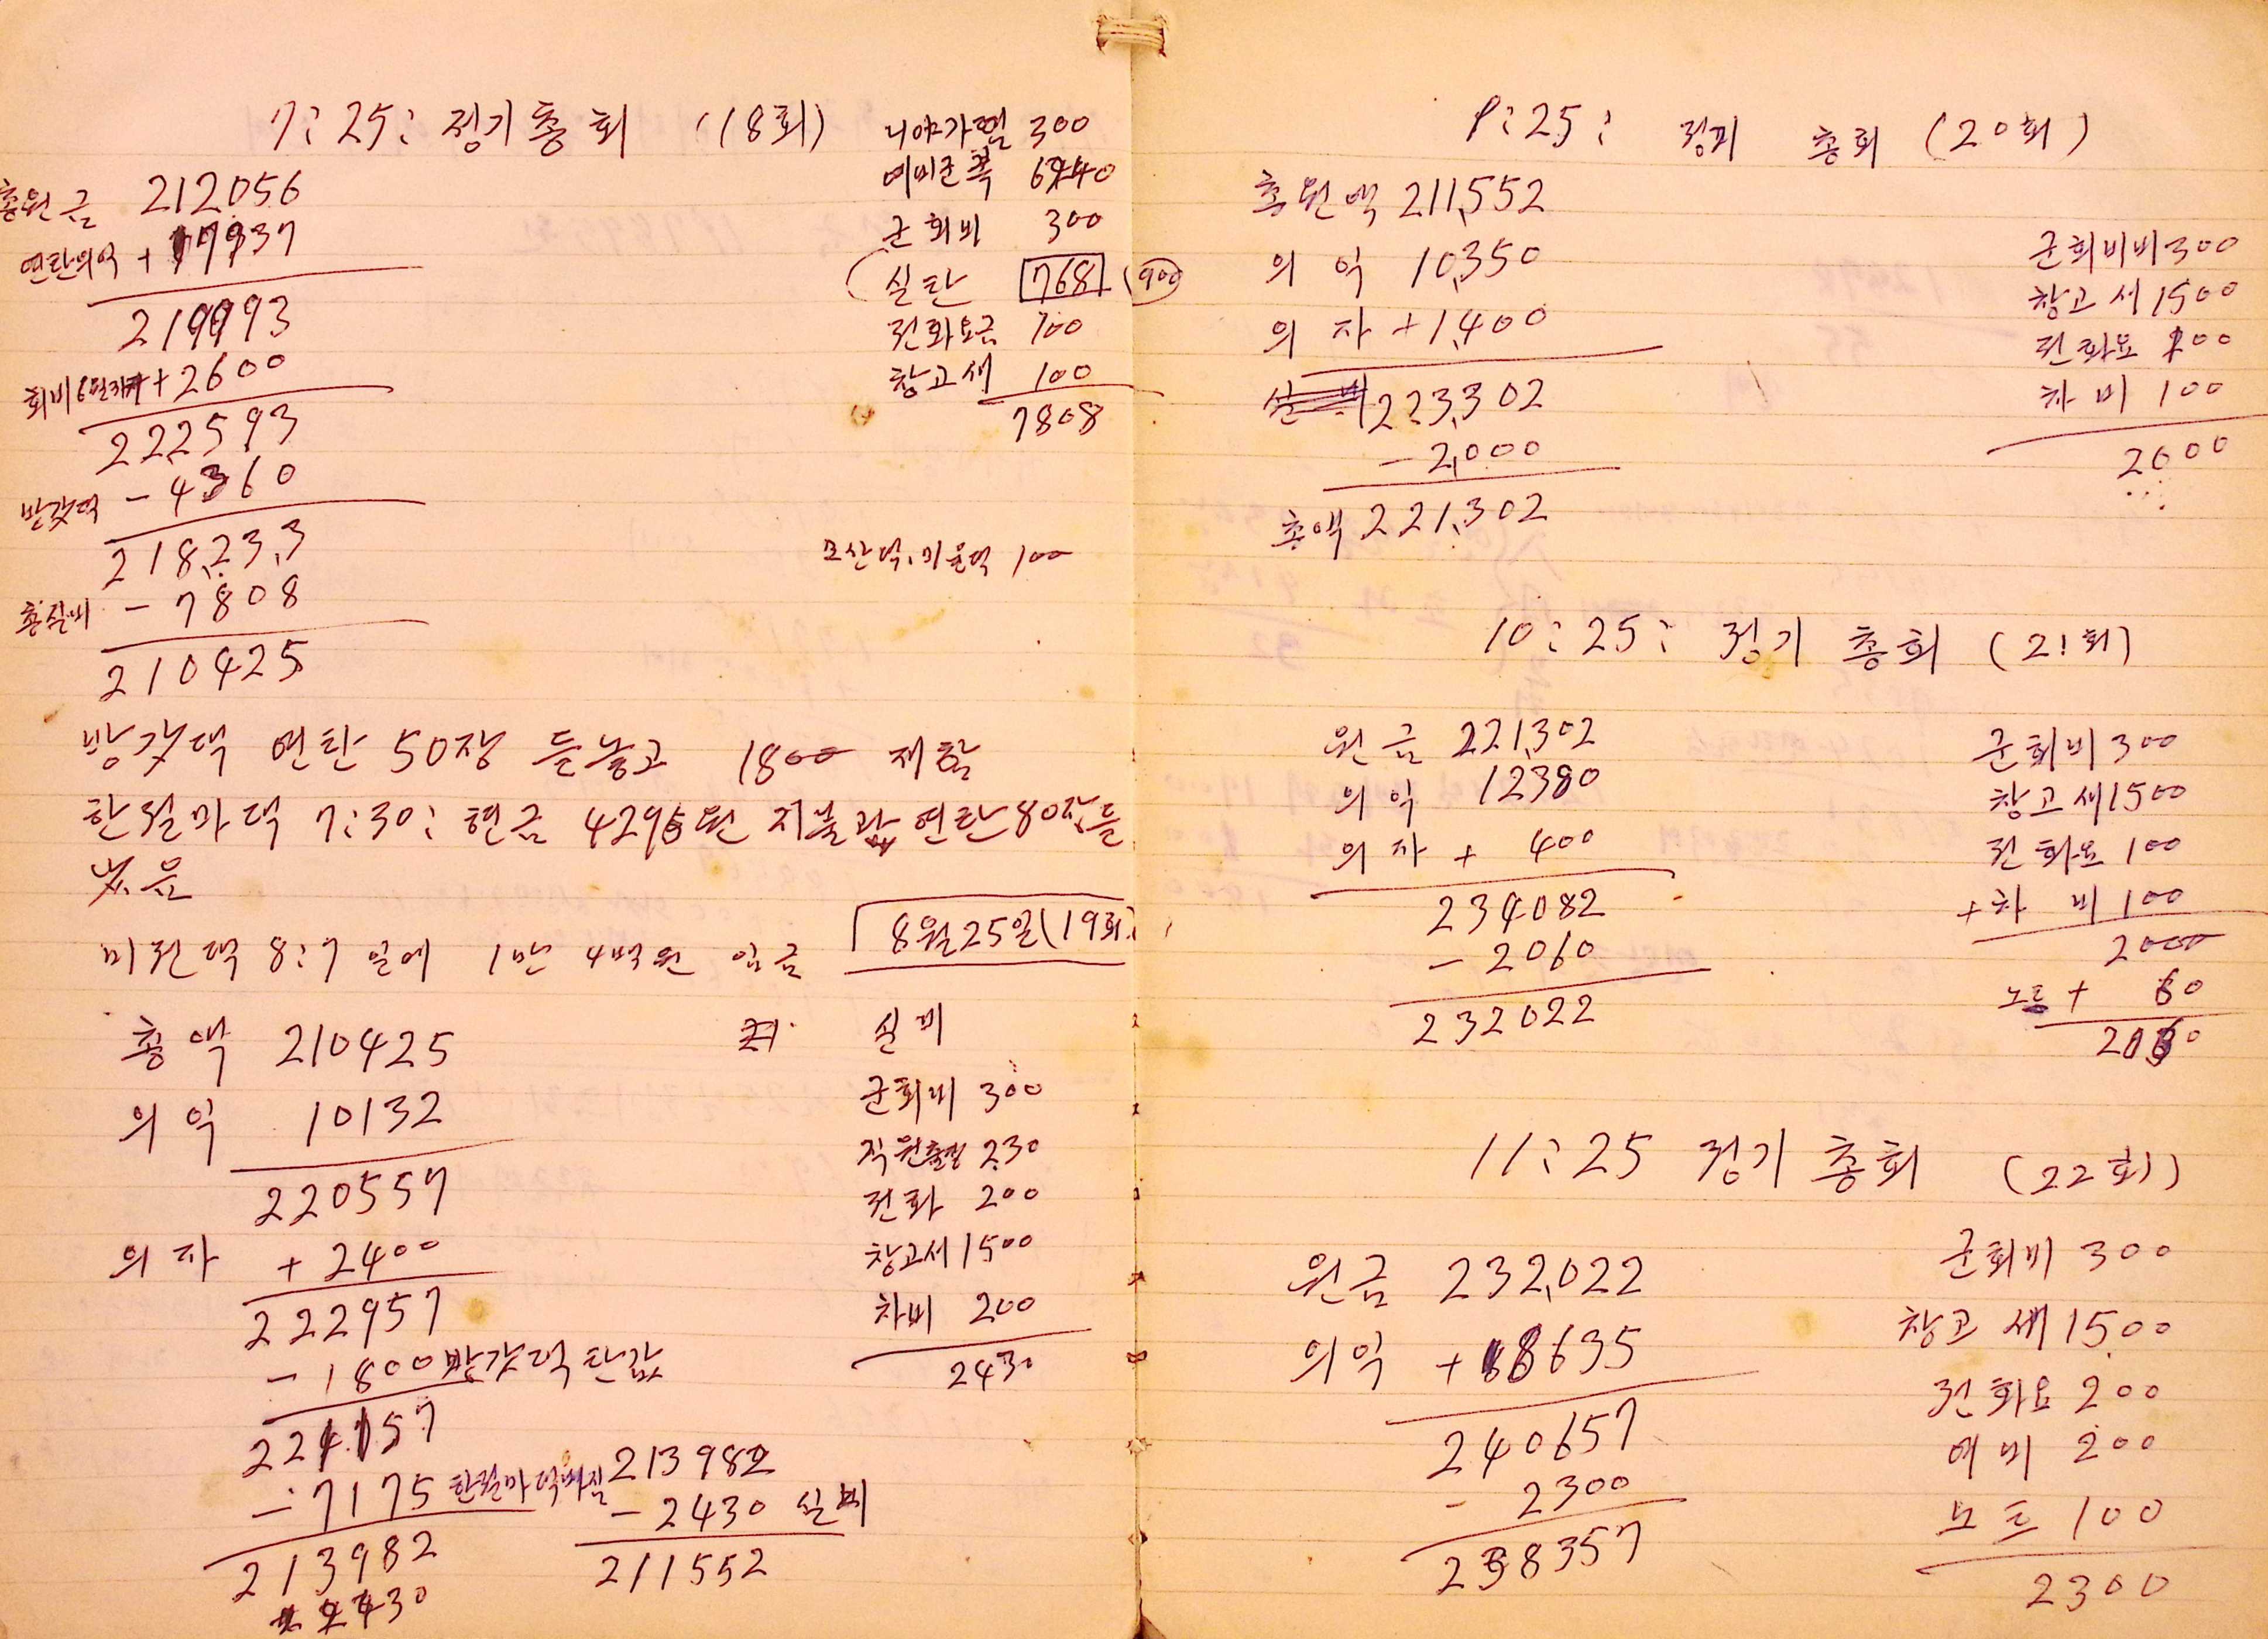 7:25: 정기총회 (18회)
총원금 212056
연탄의익 + 7937
219993
회비6월까지 +2600
222593
방갓댁 - 4360
218,233
총실비 - 7808
210425
300
6240
군회비 300
(실탄 768 (900)
전화요금 100
창고세 100
7808
모산댁, 미울댁 100
방갓댁 연탄 50장 들놓고 1800 제함
한월마댁 7:30: 현금 4295원 지불함 연탄80장들
놨음
미원댁 8:7일에 1만 4백원 입금
8월25일(19회)
총액 210425
의익 10132
220557
의자 + 2400
222957
- 1800 방갓댁 탄값
221157
- 7175 한월마댁빠짐
213982
2430
213982
- 2430 실비
211552
실비
군회비 300
직원출장 230
전화 200
창고세 1500
차비 200
2430
9:25: 정기 총회 (20회)
총원액 211,552
의익 10,350
의자 +1,400
223,302
- 2,000
총액 221,302
군회비비 300
창고세 1500
전화요 100
차비 100
2000
10:25: 정기 총회 (21회)
원금 221,302
의익 12380
의자 + 400
234082
- 2060
232022
군회비 300
창고세 1500
전화요 100
+차비 100
2000
노트 + 60
2060
11:25 정기 총회 (22회)
원금 232,022
의익 + 8635
240657
- 2300
238357
군회비 300
창고세 1500
전화요 200
여비 200
노트 100
2300